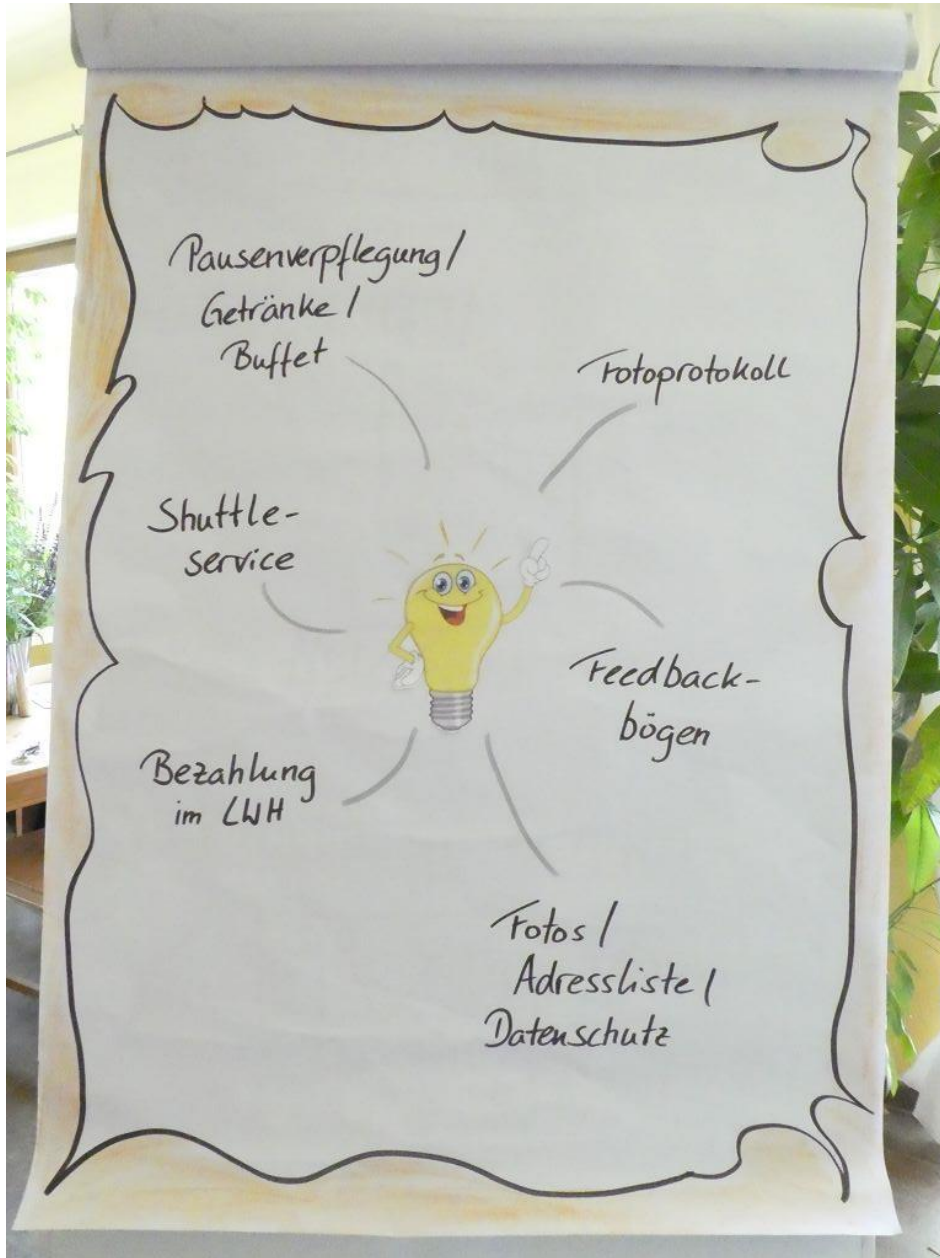 Pausenverpflegung/
Getränke/
Buffet
Fotoprotokoll
Shuttle-
service
Feedback-
bögen
Bezahlung
im LWH
Fotos/
Adressliste/
Datenschutz